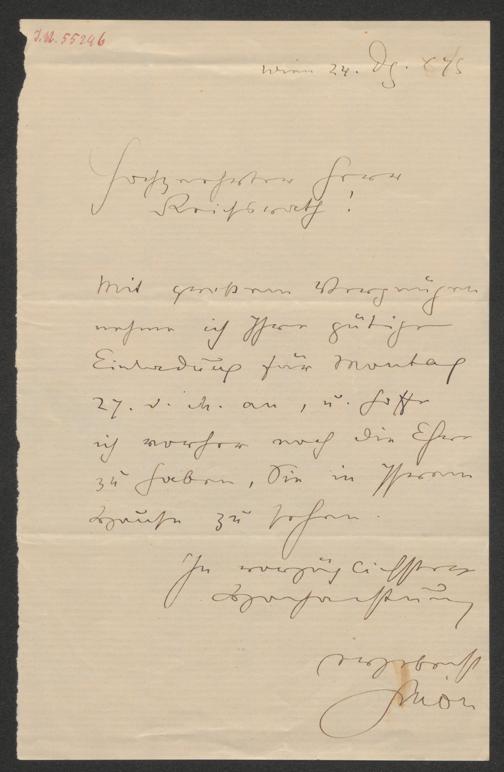 I.N. 55246
Wien 24.
Hochgeehrter Herr
Reichsrath!
Mit großem Vergnügen
nehme ich Ihre gütige
Einladung für Montag
27. d. M. an, u. hoffe
ich vorher noch die Ehre
zu haben, Sie in Ihrem
Hause zu sehen.
In vorzüglichster
Hochachtung
ergebenst